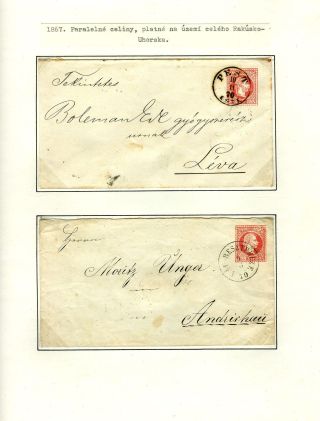 1867. Paralelné celiny, platné na území celého Rakúsko-
Uhorska.
PEST
Tekintetes
Boleman Ede gyógyszerész
urnak
Léva
Herrn
Moritz Unger
Andrichau